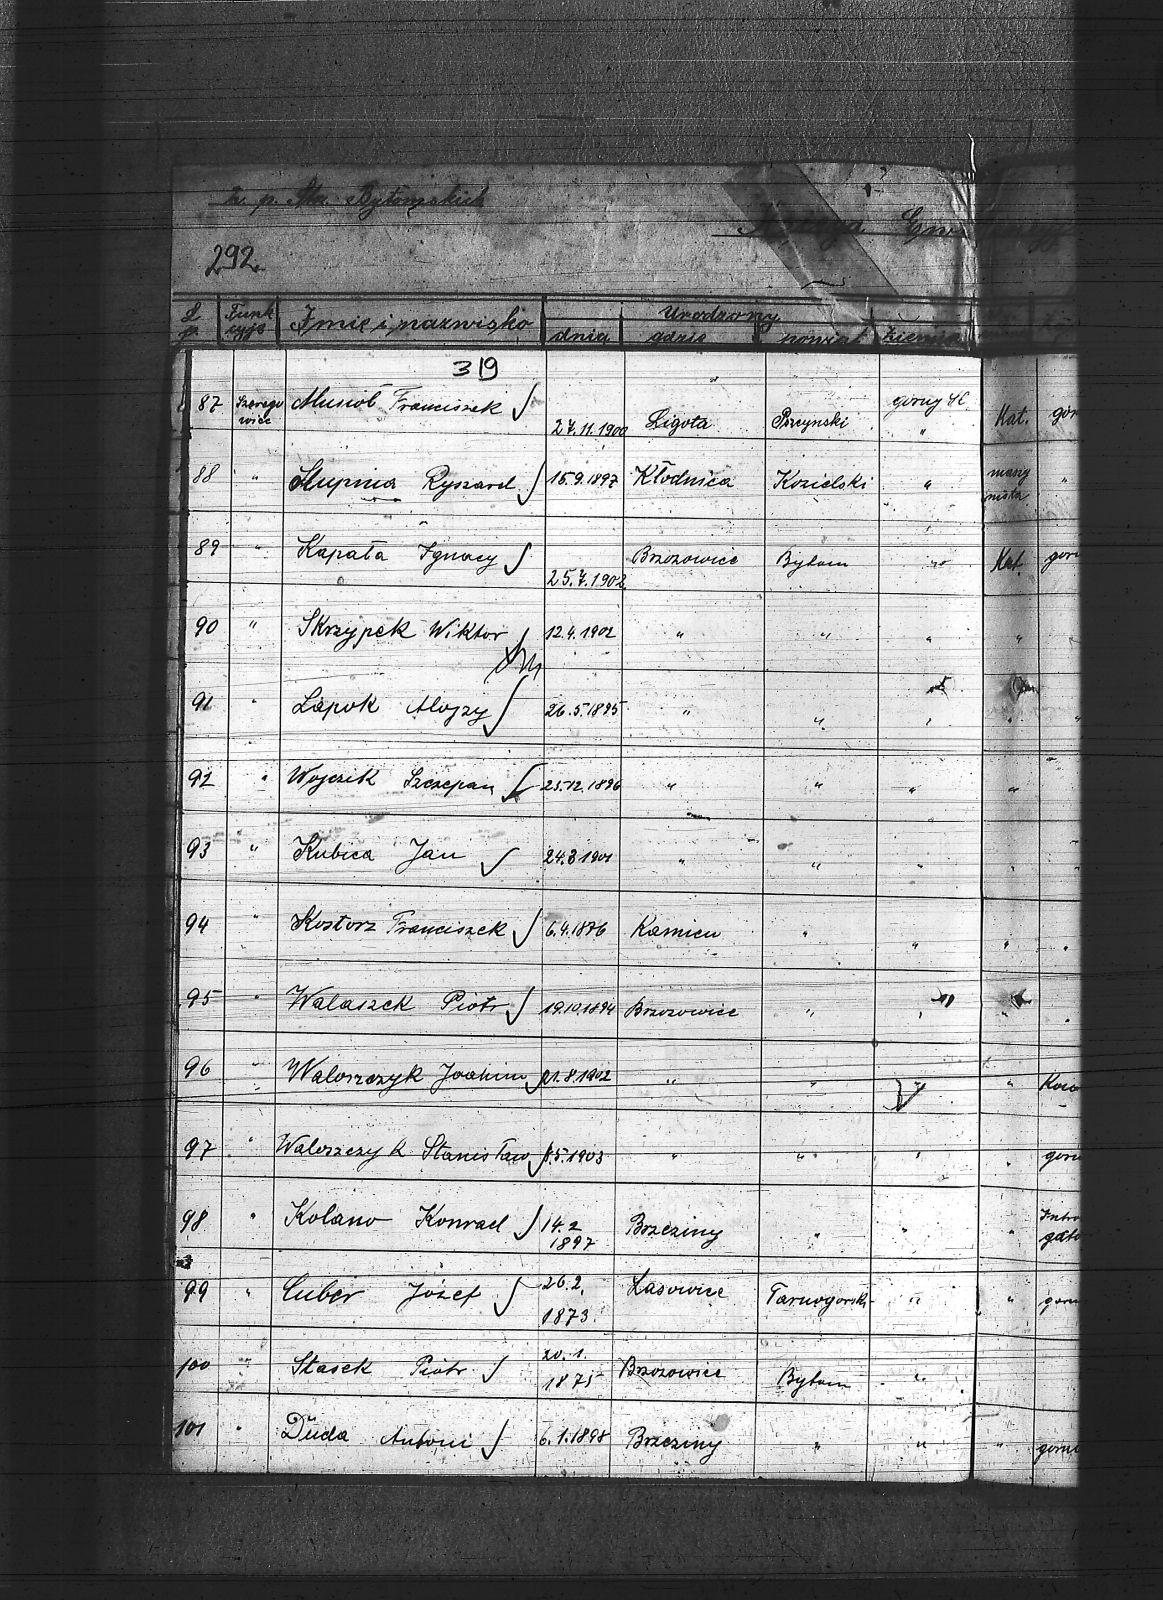 292.
L p. Funkcyja Imię i nazwisko Urodzony
dnia gdzie powiat ziemia
319
87 Szeregowiec Musioł Franciszek 27.11.1900 Ligota Pszczynski górny Śl. Kat. gór
88 " Słupina Ryszard 15.9.1897 Kłodnica Kozielski " maszynista "
89 " Kapała Ignacy 25.7.1902 Brzozowice Bytom " Kat. górn
90 " Skrzypek Wiktor 12.4.1902 " " " "
91 " Lapok Alojzy 26.5.1895 " " " " "
92 " Wojczik Szczepan 25.12.1896 " " " " "
93 " Kubica Jan 24.3.1901 " " " " "
94 " Kostorz Franciszek 6.4.1876 Kamien " " " "
95 " Walaszek Piotr 19.10.1894 Brzozowice " " " "
96 " Waloszczyk Joahim 21.8.1902 " " " " Kow
97 " Waloszczyk Stanisław 8.5.1903 " " " " górn
98 " Kolano Konrad 14.2 1897 Brzeziny " " " Intro gato
99 " Cuber Józef 26.2. 1873. Lasowice Tarnogorski " " górn
100 " Stasek Piotr 20.1. 1875 Brzozowice Bytom "
101 " Duda Antoni 6.1.1898 Brzeziny " " " górn